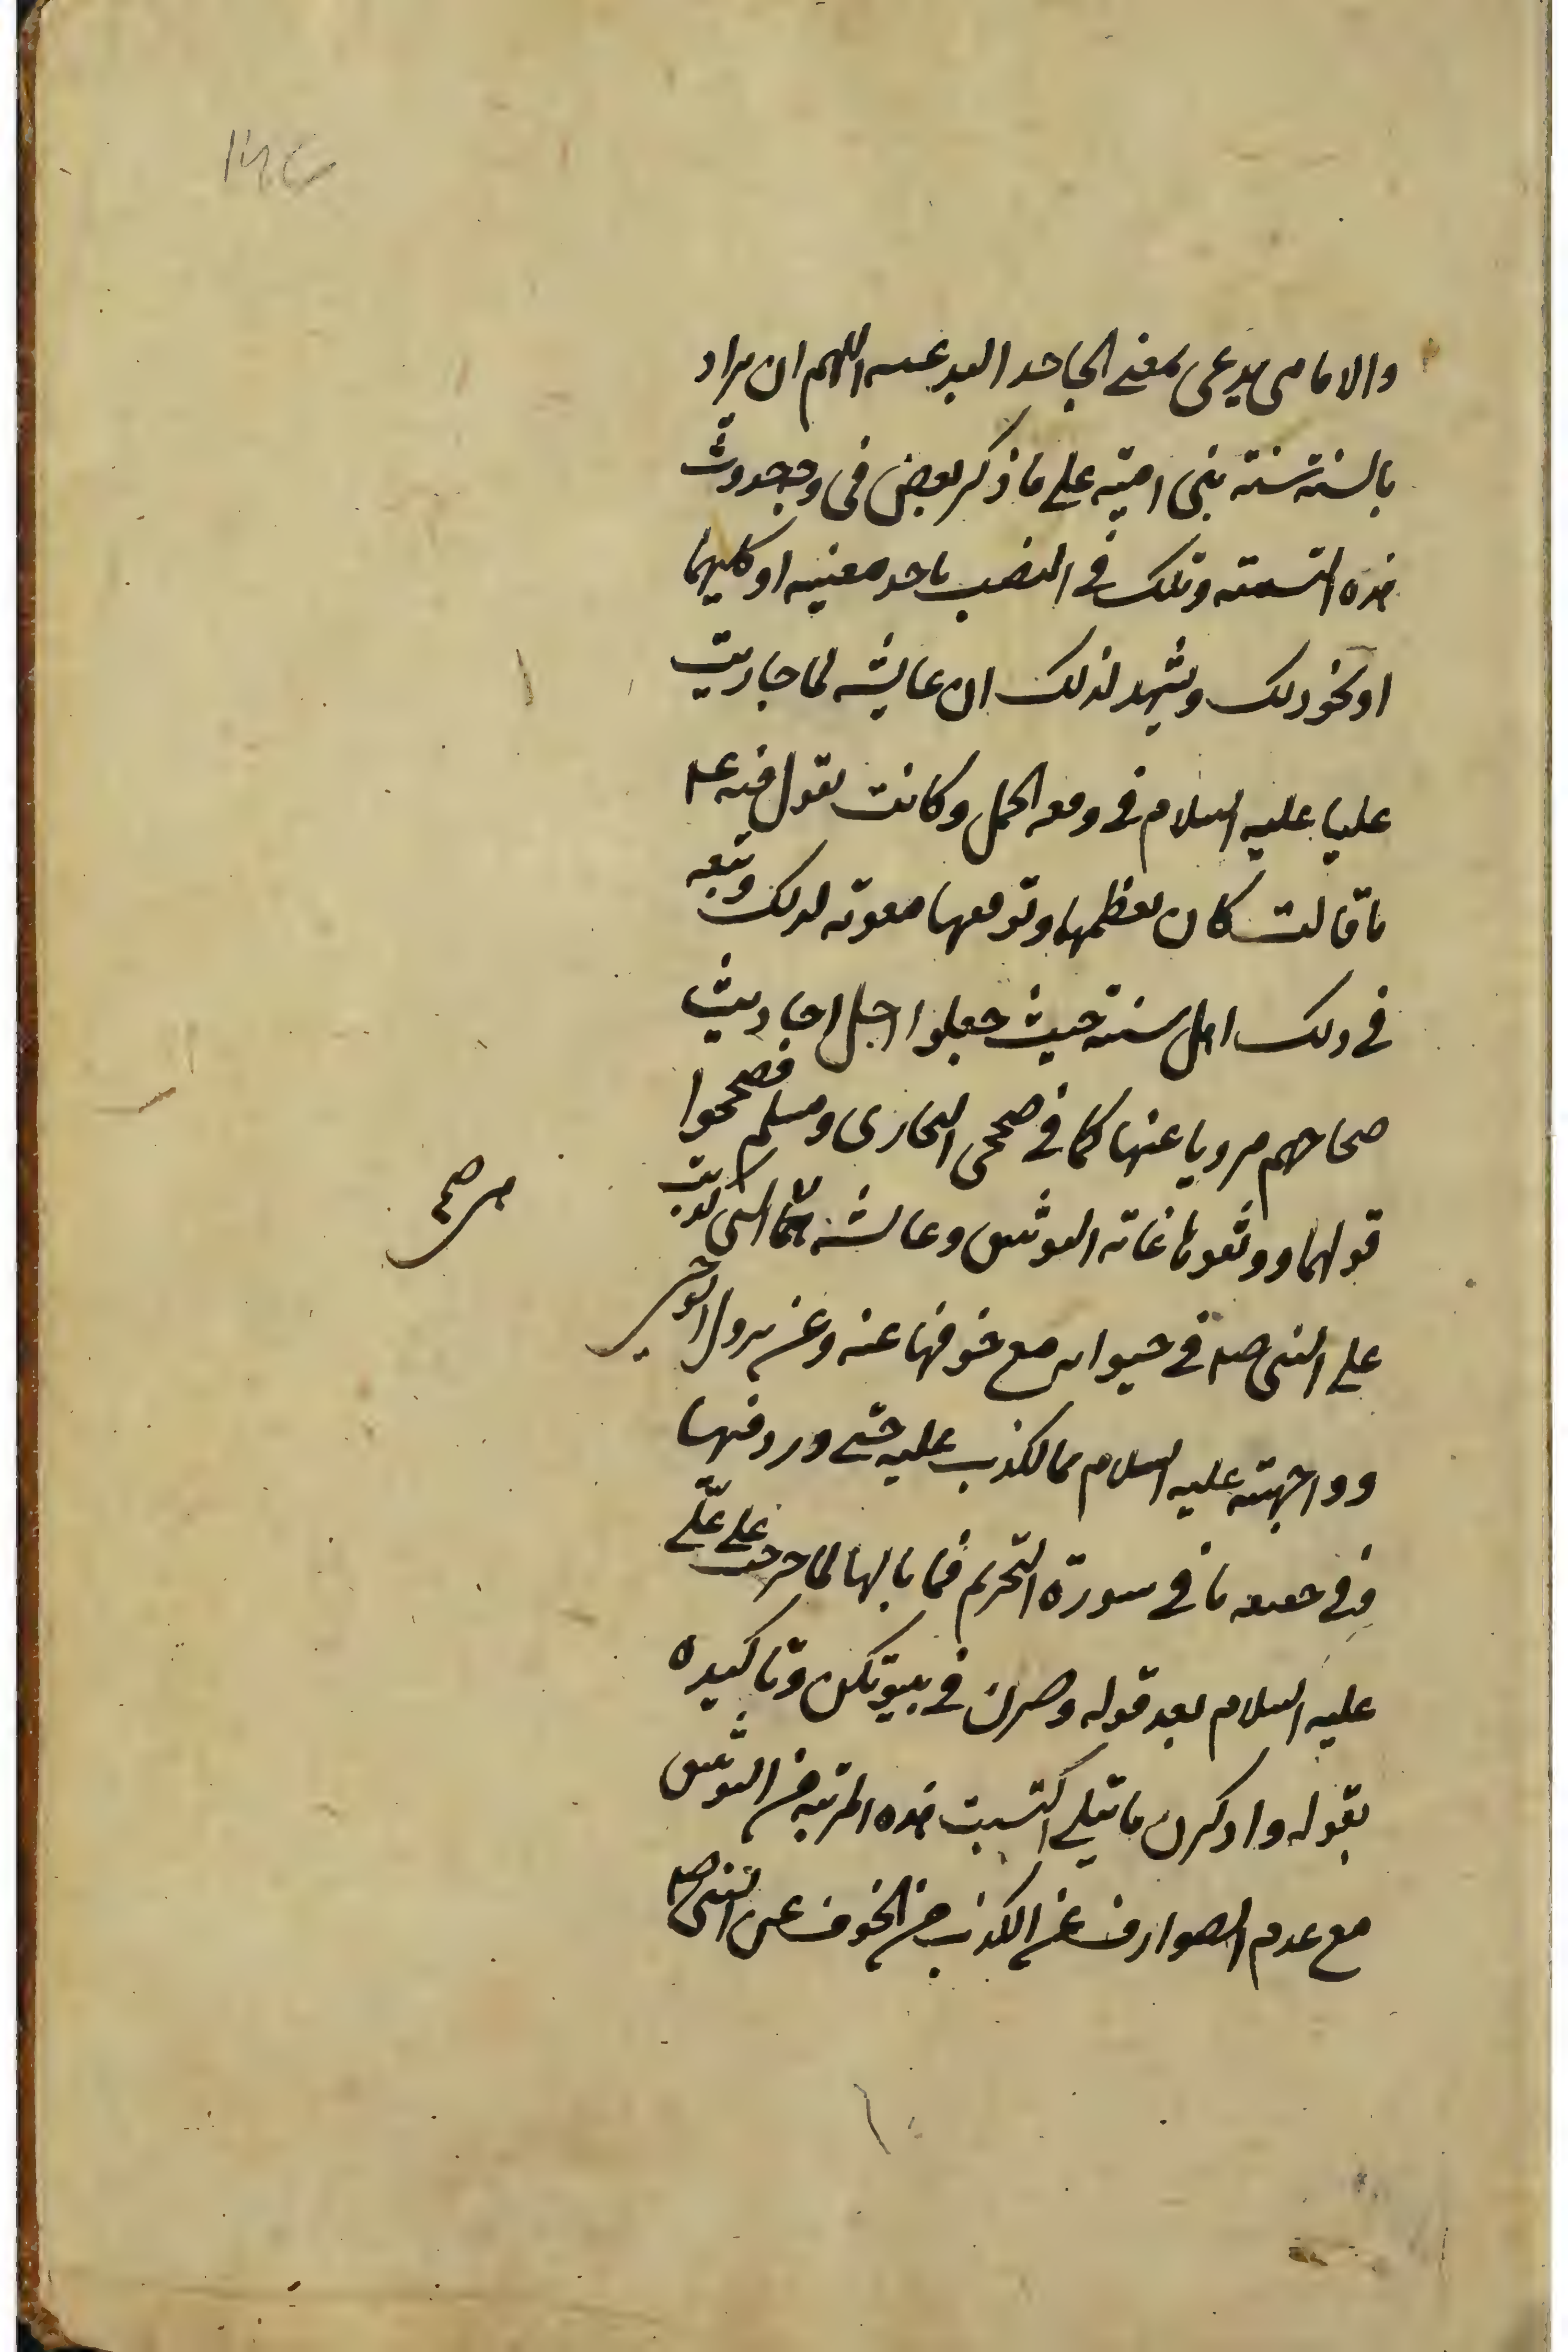 والامامی یدعی بمعنی الجاحد البدعیه اللهم ان یراد
بالسنة سنة بنی امیة علی ما ذکر بعض فی وجه حدوث
هذه التسمیة وتلک فی النصب باحد معنییه او کلیهما
او نحو ذلک ویشهد لذلک ان عایشه لما حاربت
علیا علیه السلام فی وقعه الجمل وکانت تقول فیه ع
ما قالت کان یعظمها وتوقعها معویه لذلک وتبعه
فی ذلک اهل سنته حیث جعلوا اجل احادیث
صحاحهم مرویا عنها کما فی صحیحی البخاری ومسلم فصححوا
قولهما ووثقوها غایة التوثیق وعایشه هی التی کذبت
علی النبی صلم فی حیوته مع خوفها عنه وعن نزول الوحی
وواجهته علیه السلام بالکذب علیه حتی ورد فیها
وفی حفصه ما فی سورة التحریم فما بالها لما خرجت علی علی
علیه السلام بعد قوله وقرن فی بیوتکن وتاکیده
بقوله واذکرن ما یتلی اکتسبت هذه المرتبه من التوثیق
مع عدم الصوارف عن الکذب من الخوف عن النبی صلم